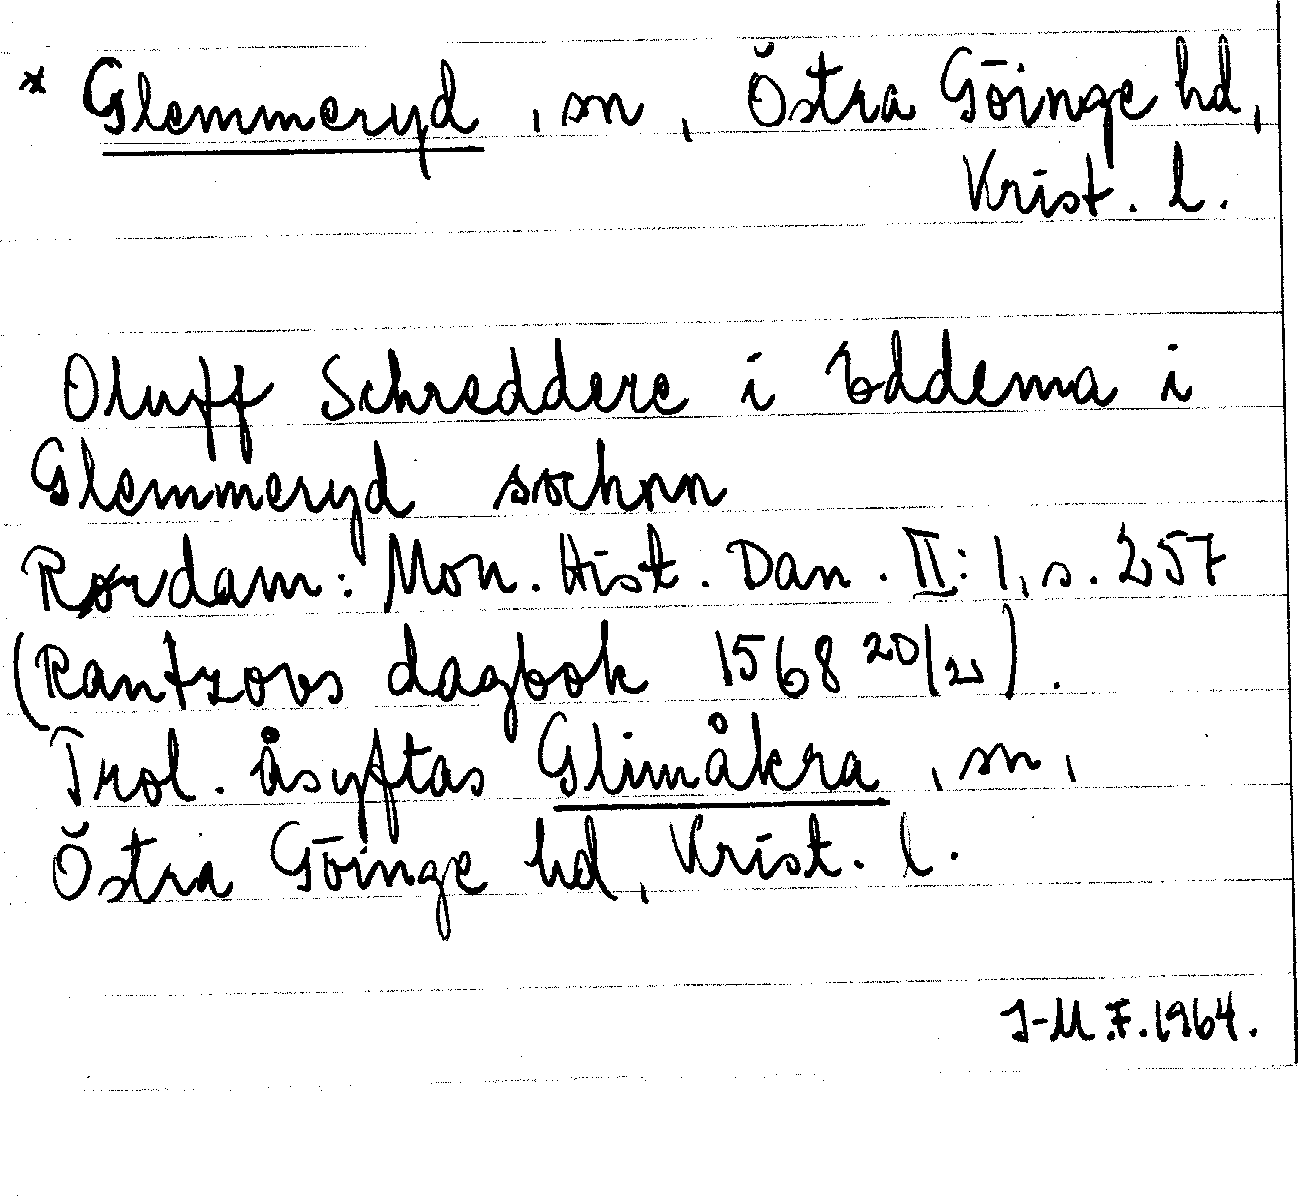 * Glemmeryd, sn, Östra Göinge hd,
Krist. l.
Oluff Schreddere i Eddema i
Glemmeryd sochnn
Rørdam: Mon. Hist. Dan. II: 1, s. 257
(Rantzovs dagbok 1568 20/2).
Trol. åsyftas Glimåkra, sn,
Östra Göinge hd, Krist. l.
I-M.F. 1964.